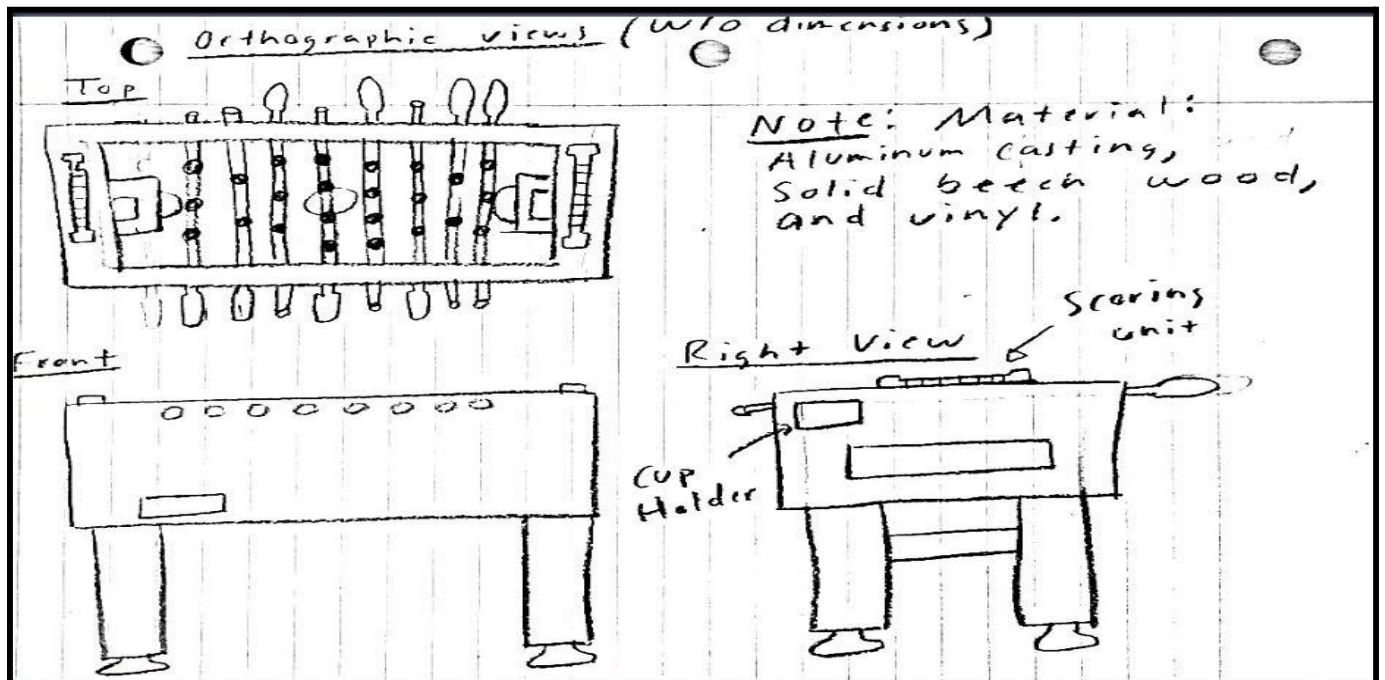 Orthographic views (W/O dimensions)
Top
Note: Material:
Aluminum casting,
Solid beech wood,
and vinyl.
Front
Right View
Scoring
unit
Cup
Holder